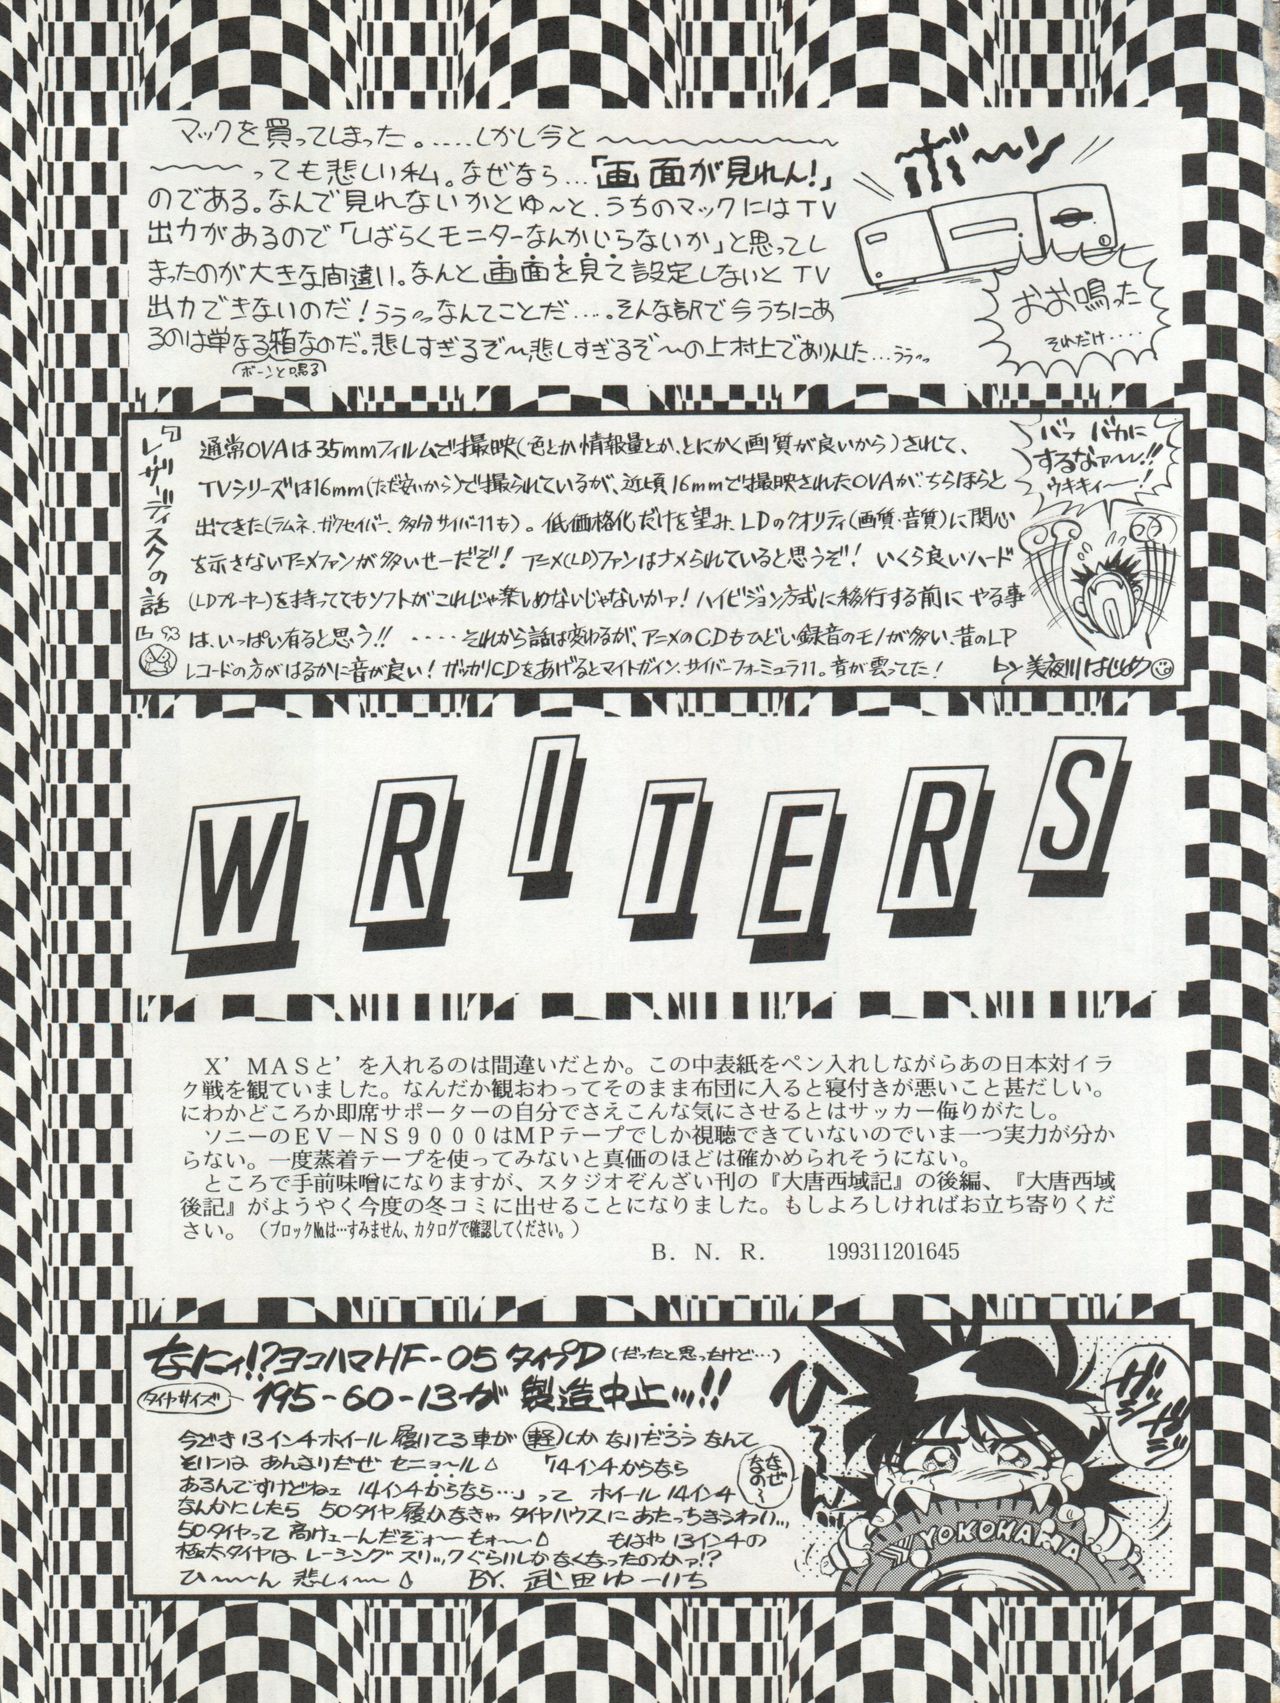 マックを買ってしまった。.....しかし今と〜〜〜〜〜〜〜
〜〜〜〜っても悲しい私。なぜなら...「画面が見れん!」
のである。なんで見れないかとゆ〜と、うちのマックにはTV
出力があるので「しばらくモニターなんかいらないか」と思ってし
まったのが大きな間違い。なんと画面を見て設定しないとTV
出力できないのだ!ううっっなんてことだ.....。そんな訳で今うちにあ
るのは単なる箱なのだ。悲しすぎるぞ〜悲しすぎるぞ〜の上村上でありんした...ううっっ
(ボーンと鳴る)
ボ〜ン
おお鳴った
それだけ・・・・
「レーザーディスクの話」
'93
通常OVAは35mmフィルムで撮映(色とか情報量とか、とにかく画質が良いから)されて、
TVシリーズは16mm(ただ安いから)で撮られているが、近頃16mmで撮映されたOVAがちらほらと
出てきた(ラムネ、ガクセイバー、多分サイバー11も)。低価格化だけを望み、LDのクオリティ(画質・音質)に関心
を示さないアニメファンが多いせーだぞ!アニメ(LD)ファンはナメられていると思うぞ!いくら良いハード
(LDプレーヤー)を持っててもソフトがこれじゃ楽しめないじゃないかァ!ハイビジョン方式に移行する前にやる事
は、いっぱい有ると思う!!・・・・・それから話は変わるが、アニメのCDもひどい録音のモノが多い、昔のLP
レコードの方がはるかに音が良い!ガッカリCDをあげるとマイトガイン、サイバーフォーミュラ11。音が曇ってた!
バッバカに
するなァ〜!!
ウキキィー!
by 美夜川はじめ
WRITERS
X'MASと'を入れるのは間違いだとか。この中表紙をペン入れしながらあの日本対イラ
ク戦を観ていました。なんだか観おわってそのまま布団に入ると寝付きが悪いこと甚だしい。
にわかどころか即席サポーターの自分でさえこんな気にさせるとはサッカー侮りがたし。
ソニーのEV−NS9000はMPテープでしか視聴できていないのでいま一つ実力が分か
らない。一度蒸着テープを使ってみないと真価のほどは確かめられそうにない。
ところで手前味噌になりますが、スタジオぞんざい刊の『大唐西域記』の後編、『大唐西域
後記』がようやく今度の冬コミに出せることになりました。もしよろしければお立ち寄りくだ
さい。(ブロック№は…すみません、カタログで確認してください。)
B. N. R. 199311201645
なにィ!?ヨコハマHF-05タイプD(だったと思ったけど...)
タイヤサイズ 195-60-13が製造中止ッ!!
今どき13インチホイール履いてる車が軽しかないだろうなんて
そりはあんまりだぜセニョ〜ル 「14インチからなら
あるんですけどねェ 14インチからなら...」ってホイール14インチ
なんかにしたら50タイヤ履かなきゃタイヤハウスにあたっちまうわい...
50タイヤって高けェーんだぞォー もォー もはや13インチの
極太タイヤはレーシングスリックぐらいしかなくなったのかァ!?
ひ〜〜ん悲しィー BY. 武田ゆーいち
なぜなの〜
ひ〜ん
ガッデム
YOKOHAMA